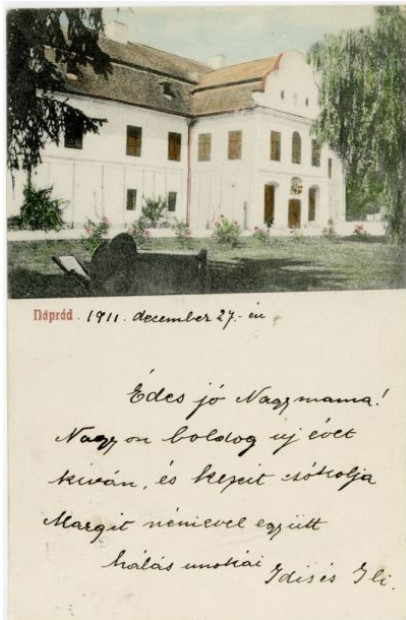 Náprád . 1911. december 27.-én
Édes jó Nagymama!
Nagyon boldog új évet
kiván, és kezeit csókolja
Margit nénievel együtt
hálás unokái
Idis és Ili.